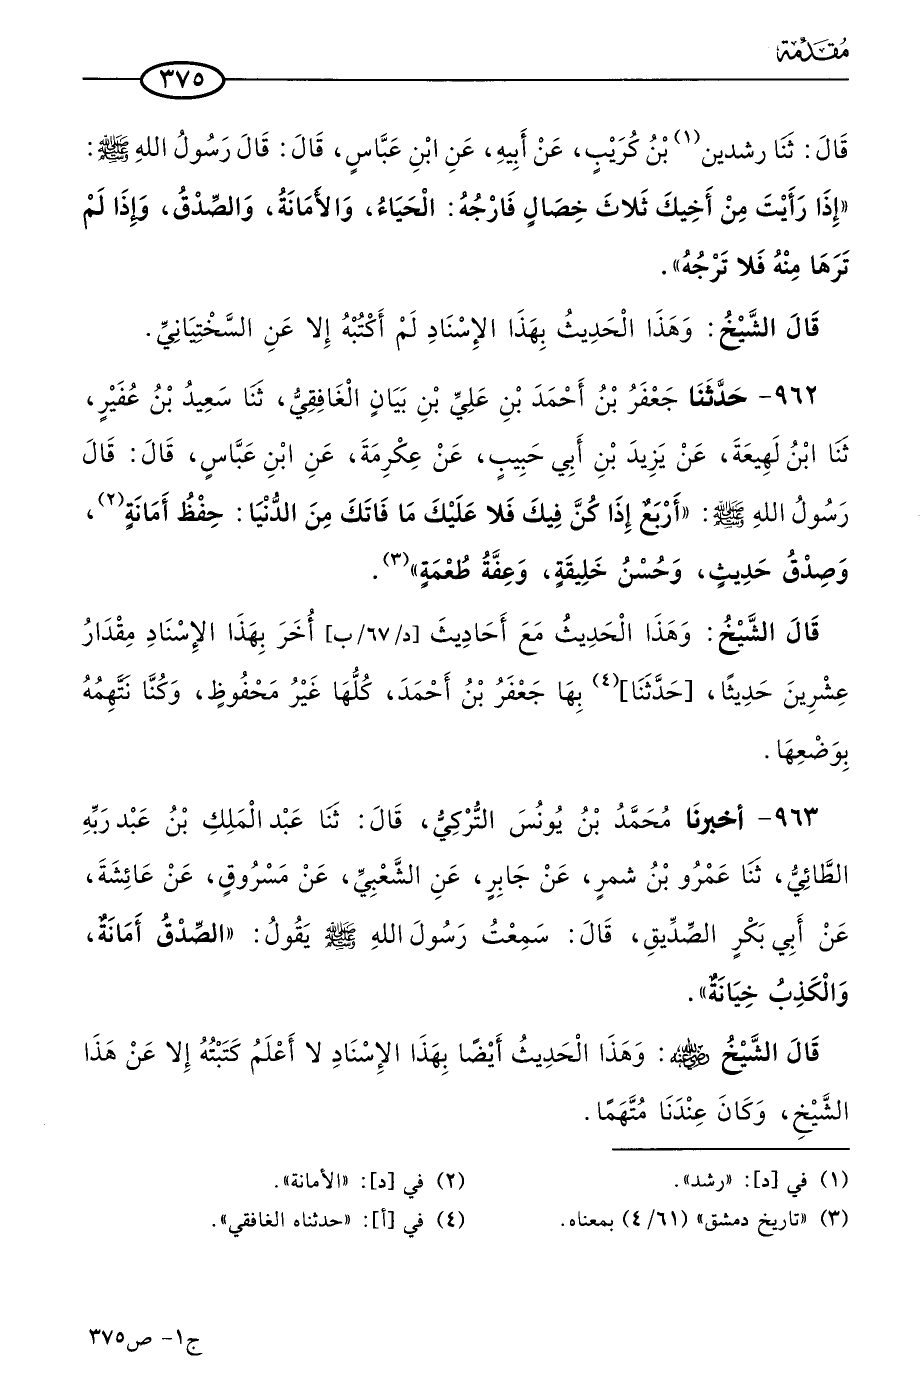 مُقَدِّمَة
٣٧٥
قَالَ: ثَنَا رشدين(١) بْنُ كُرَيْبٍ، عَنْ أَبِيهِ، عَنِ ابْنِ عَبَّاسٍ، قَالَ: قَالَ رَسُولُ اللهِ ﷺ:
«إِذَا رَأَيْتَ مِنْ أَخِيكَ ثَلاثَ خِصَالٍ فَارْجُهُ: الْحَيَاءُ، وَالأَمَانَةُ، وَالصِّدْقُ، وَإِذَا لَمْ
تَرَهَا مِنْهُ فَلا تَرْجُهُ».
قَالَ الشَّيْخُ: وَهَذَا الْحَدِيثُ بِهَذَا الإِسْنَادِ لَمْ أَكْتُبْهُ إِلا عَنِ السَّخْتِيَانِيِّ.
٩٦٢- حَدَّثَنَا جَعْفَرُ بْنُ أَحْمَدَ بْنِ عَلِيِّ بْنِ بَيَانٍ الْغَافِقِيُّ، ثَنَا سَعِيدُ بْنُ عُفَيْرٍ،
ثَنَا ابْنُ لَهِيعَةَ، عَنْ يَزِيدَ بْنِ أَبِي حَبِيبٍ، عَنْ عِكْرِمَةَ، عَنِ ابْنِ عَبَّاسٍ، قَالَ: قَالَ
رَسُولُ اللهِ ﷺ: «أَرْبَعٌ إِذَا كُنَّ فِيكَ فَلا عَلَيْكَ مَا فَاتَكَ مِنَ الدُّنْيَا: حِفْظُ أَمَانَةٍ(٢)،
وَصِدْقُ حَدِيثٍ، وَحُسْنُ خَلِيقَةٍ، وَعِفَّةُ طُعْمَةٍ»(٣).
قَالَ الشَّيْخُ: وَهَذَا الْحَدِيثُ مَعَ أَحَادِيثَ [د/٦٧/ب] أُخَرَ بِهَذَا الإِسْنَادِ مِقْدَارُ
عِشْرِينَ حَدِيثًا، [حَدَّثَنَا](٤) بِهَا جَعْفَرُ بْنُ أَحْمَدَ، كُلُّهَا غَيْرُ مَحْفُوظٍ، وَكُنَّا نَتَّهِمُهُ
بِوَضْعِهَا.
٩٦٣- أخبرنَا مُحَمَّدُ بْنُ يُونُسَ التُّرْكِيُّ، قَالَ: ثَنَا عَبْد الْمَلِكِ بْنُ عَبْد رَبِّهِ
الطَّائِيُّ، ثَنَا عَمْرُو بْنُ شمرٍ، عَنْ جَابِرٍ، عَنِ الشَّعْبِيِّ، عَنْ مَسْرُوقٍ، عَنْ عَائِشَةَ،
عَنْ أَبِي بَكْرٍ الصِّدِّيقِ، قَالَ: سَمِعْتُ رَسُولَ اللهِ ﷺ يَقُولُ: «الصِّدْقُ أَمَانَةٌ،
وَالْكَذِبُ خِيَانَةٌ».
قَالَ الشَّيْخُ رضي الله عنه: وَهَذَا الْحَدِيثُ أَيْضًا بِهَذَا الإِسْنَادِ لا أَعْلَمُ كَتَبْتُهُ إِلا عَنْ هَذَا
الشَّيْخِ، وَكَانَ عِنْدَنَا مُتَّهَمًا.
(١) في [د]: «رشد».
(٢) في [د]: «الأمانة».
(٣) «تاريخ دمشق» (٤/٦١) بمعناه.
(٤) في [أ]: «حدثناه الغافقي».
ج١- ص٣٧٥